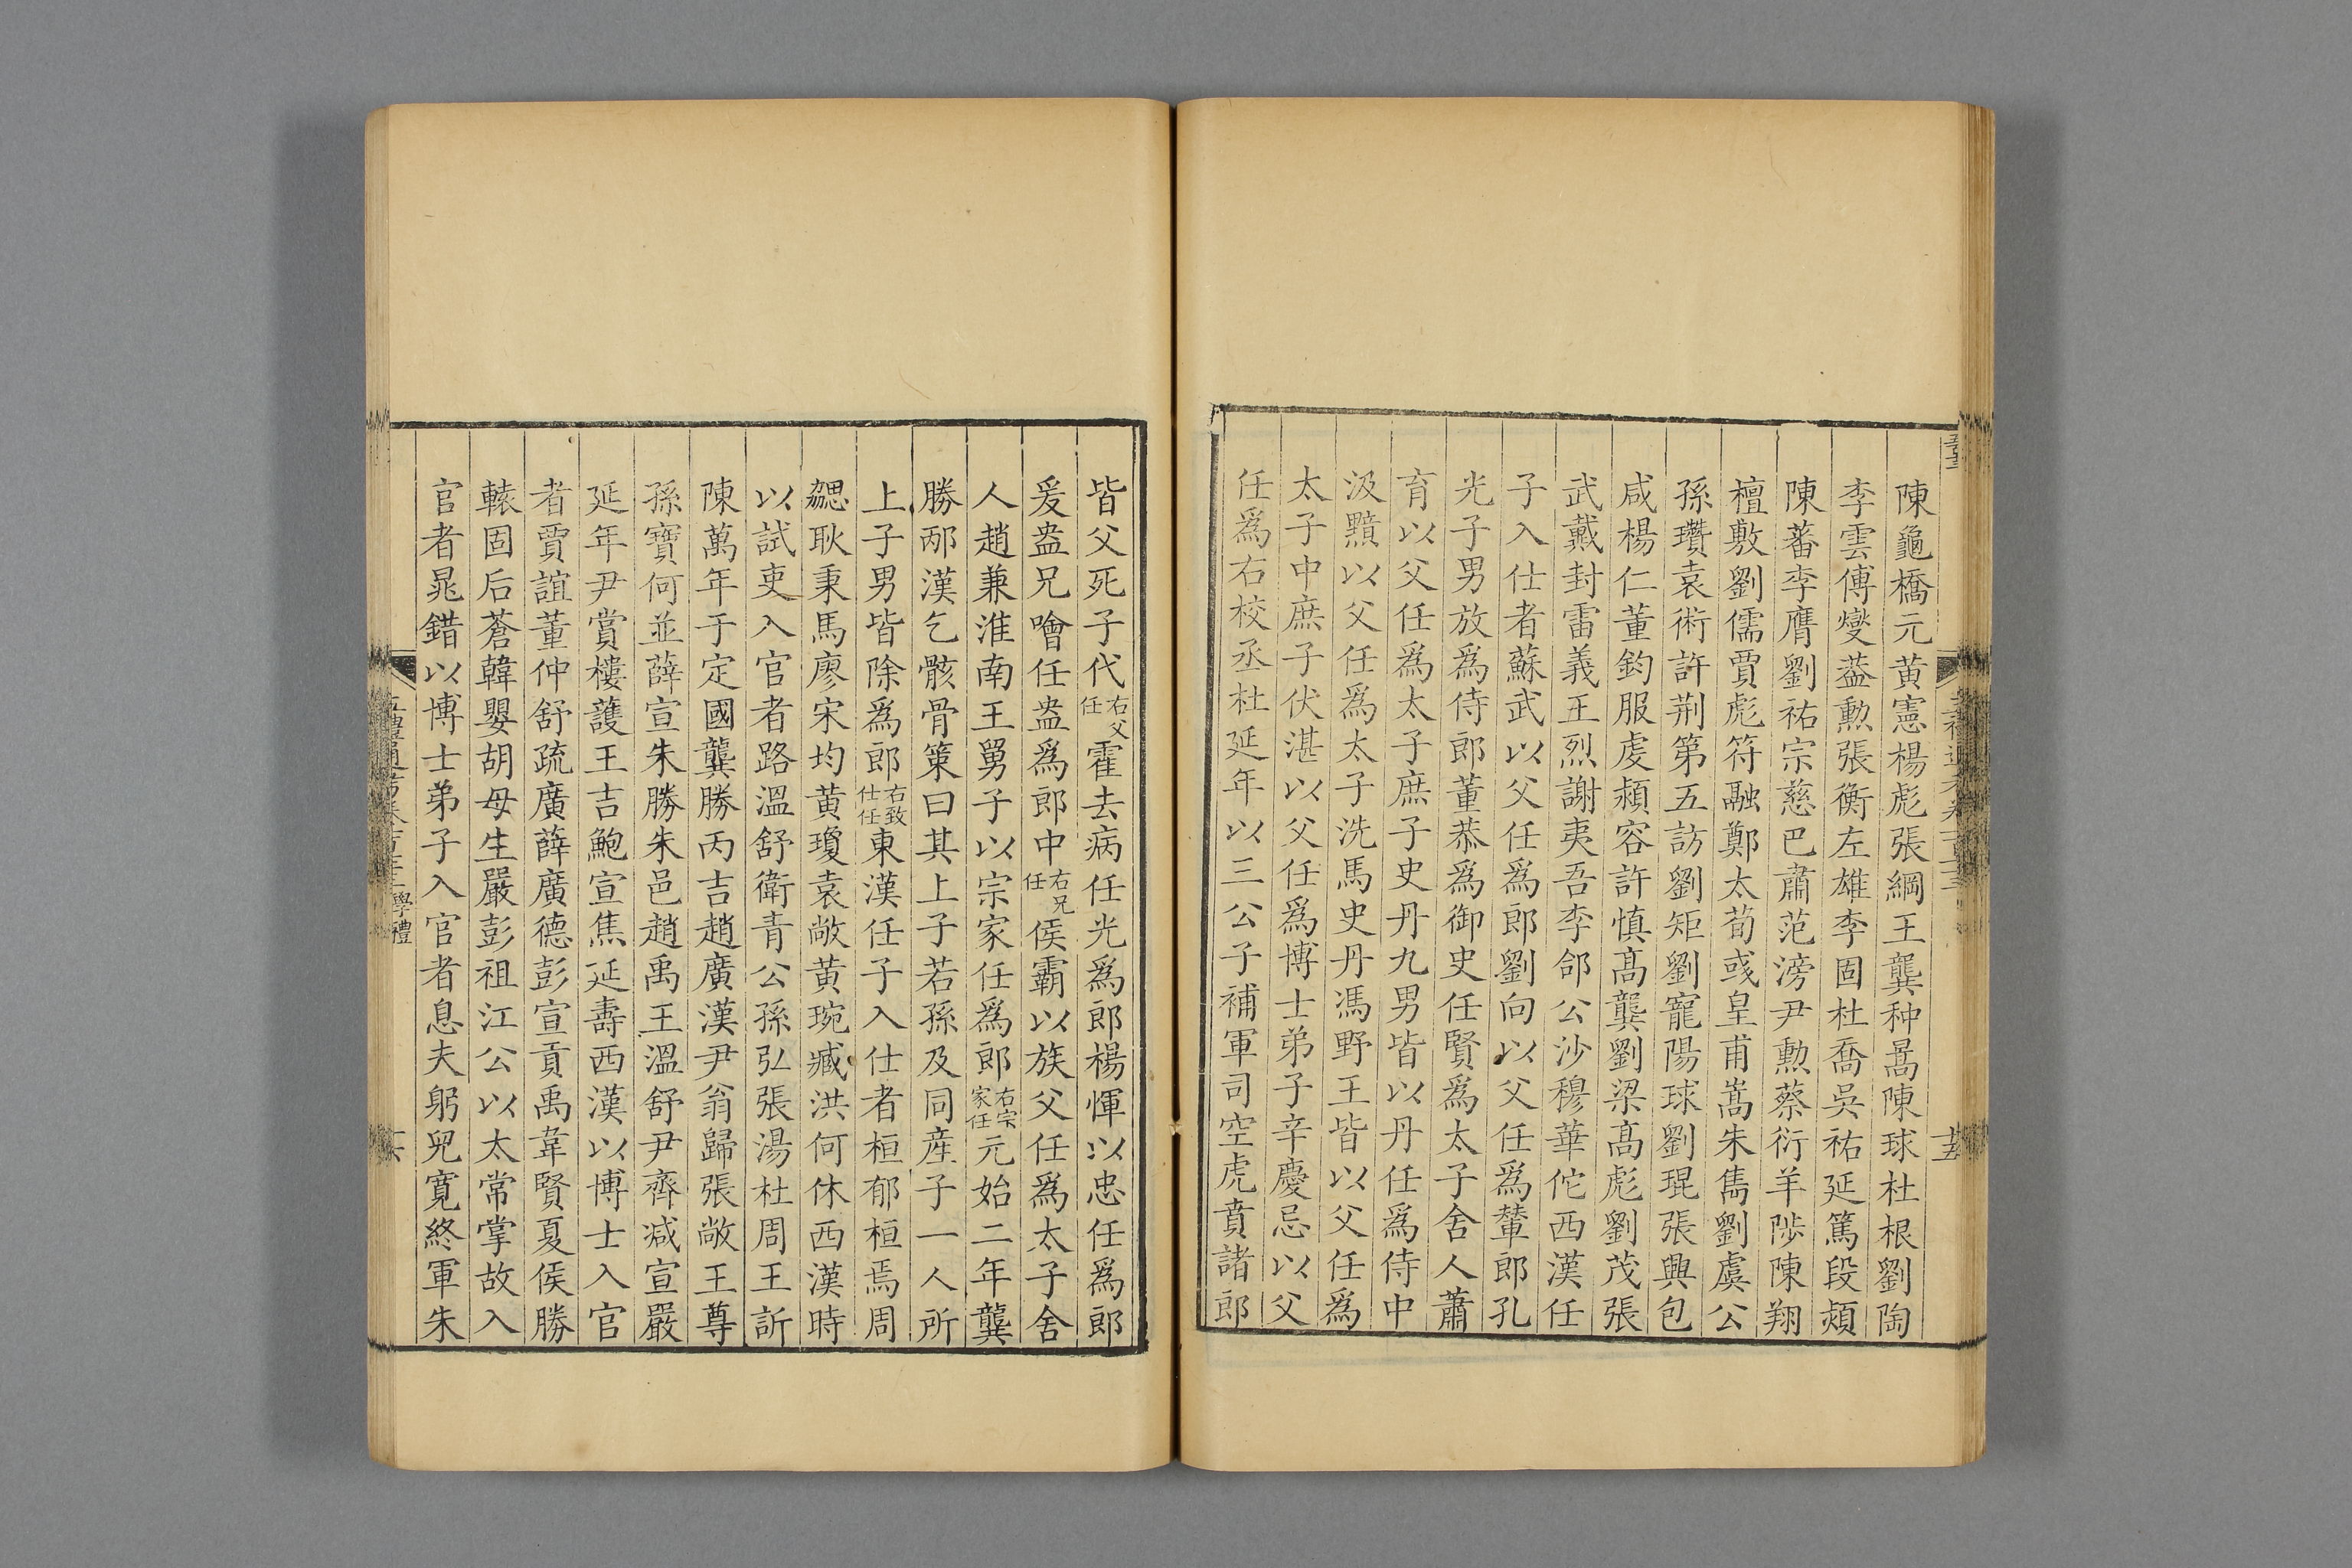 陳龜橋元黄憲楊彪張綱王龔种暠陳球杜根劉陶
李雲傅燮葢勲張衡左雄李固杜喬吳祐延篤段熲
陳蕃李膺劉祐宗慈巴肅范滂尹勲蔡衍羊陟陳翔
檀敷劉儒賈彪符融鄭太荀彧皇甫嵩朱雋劉虞公
孫瓚袁術許荆第五訪劉矩劉寵陽球劉琨張興包
咸楊仁董鈞服虔潁容許慎髙龔劉梁髙彪劉茂張
武戴封雷義王烈謝夷吾李郃公沙穆華佗西漢任
子入仕者蘇武以父任爲郎劉向以父任爲輦郎孔
光子男放爲侍郎董恭爲御史任賢爲太子舍人蕭
育以父任爲太子庶子史丹九男皆以丹任爲侍中
汲黯以父任爲太子洗馬史丹馮野王皆以父任爲
太子中庶子伏湛以父任爲博士弟子辛慶忌以父
任爲右校丞杜延年以三公子補軍司空虎賁諸郎
皆父死子代右父任霍去病任光爲郎楊惲以忠任爲郎
爰盎兄噲任盎爲郎中右兄任侯霸以族父任爲太子舍
人趙兼淮南王舅子以宗家任爲郎右宗家任元始二年龔
勝邴漢乞骸骨策曰其上子若孫及同産子一人所
上子男皆除爲郎右致仕任東漢任子入仕者桓郁桓焉周
勰耿秉馬廖宋均黄瓊袁敞黄琬臧洪何休西漢時
以試吏入官者路溫舒衛青公孫弘張湯杜周王訢
陳萬年于定國龔勝丙吉趙廣漢尹翁歸張敞王尊
孫寶何並薛宣朱勝朱邑趙禹王溫舒尹齊减宣嚴
延年尹賞樓護王吉鮑宣焦延壽西漢以博士入官
者賈誼董仲舒疏廣薛廣德彭宣貢禹韋賢夏侯勝
轅固后蒼韓嬰胡母生嚴彭祖江公以太常掌故入
官者晁錯以博士弟子入官者息夫躬兒寛終軍朱
學禮